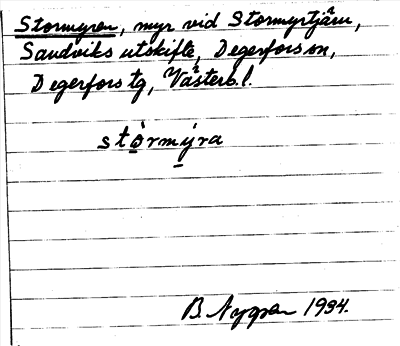 Stormyren, myr vid Stormyrtjärn,
Sandviks utskifte, Degerfors sn,
Degerfors tg, Västerb. l.
stòrmýra
B. Nygren 1934.